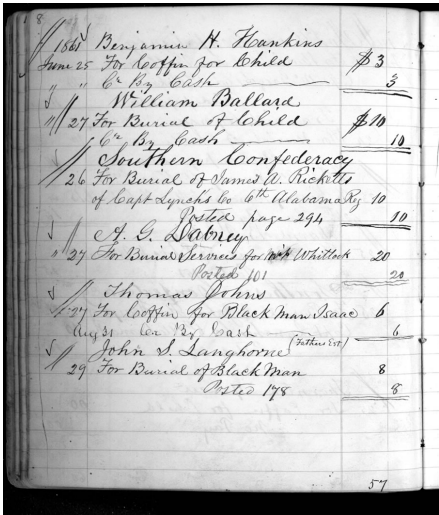 8
1861 Benjamin H. Hankins
June 25 For Coffin for Child $3
" " Cr By Cash 3
William Ballard
" 27 For Burial of Child $10
Cr By Cash 10
Southern Confederacy
26 For Burial of James A. Ricketts
of Capt Lynch's Co 6th Alabama Reg 10
Posted page 294 10
A. G. Dabney
" 27 For Burial Services for Whitlock 20
Posted 101 20
Thomas Johns
" 27 For Coffin for Black Man Isaac 6
Aug 31 Cr By Cash 6
John S. Langhorne (Fathers Est.)
29 For Burial of Black Man 8
Posted 178 8
57